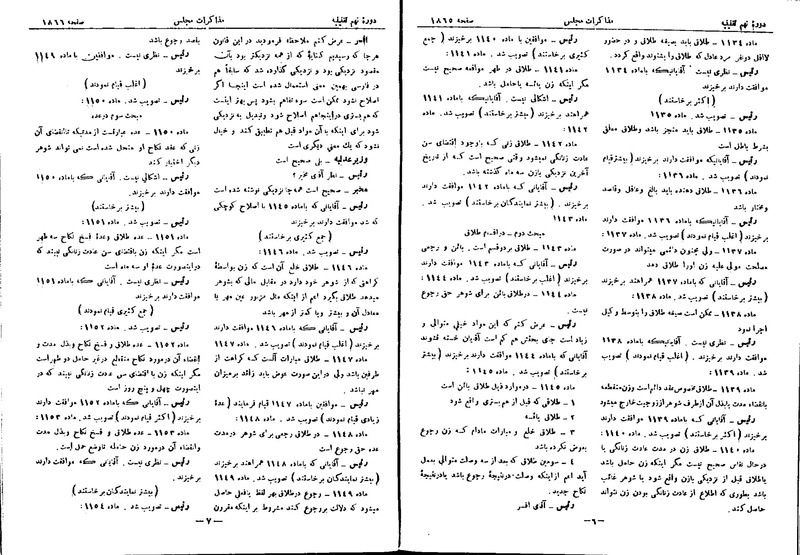 دورهٔ نهم تقنینیه مذاکرات مجلس صفحه ۱۸۶۵
ماده ۱۱۳۴ - طلاق باید بصیغه طلاق و در حضور
لااقل دو نفر مرد عادل که طلاق را بشنوند واقع گردد.
رئیس - نظری نیست آقایانیکه باماده ۱۱۳۴
موافقت دارند برخیزند
( اکثر برخاستند )
رئیس - تصویب شد . ماده ۱۱۳۵
ماده ۱۱۳۵ - طلاق باید منجز باشد وطلاق معلق
بشرط باطل است
رئیس - آقایانیکه موافقت دارند برخیزند (بیشتر قیام
نمودند) تصویب شد . ماده ۱۱۳۶ :
ماده ۱۱۳۶ - طلاق دهنده باید بالغ وعاقل وقاصد
ومختار باشد
رئیس - آقایانیکه باماده ۱۱۳۶ موافقت دارند
برخیزند ( اغلب قیام نمودند ) تصویب شد . ماده ۱۱۳۷ :
ماده ۱۱۳۷ - ولی مجنون دائمی میتواند در صورت
مصلحت مولی علیه زن اورا طلاق دهد
رئیس - آقایانی که باماده ۱۱۳۷ همراهند برخیزند
( بیشتر برخاستند ) تصویب شد . ماده ۱۱۳۸ :
ماده ۱۱۳۸ - ممکن است صیغه طلاق را بتوسط وکیل
اجرا نمود
رئیس - نظری نیست . آقایانیکه باماده ۱۱۳۸
موافقت دارند برخیزند . ( اغلب قیام نمودند ) تصویب
شد . ماده ۱۱۳۹ :
ماده ۱۱۳۹ - طلاق مخصوص عقد دائم است وزن منقطعه
بانقضاء مدت یابذل آن ازطرف شوهر از زوجیت خارج میشود
رئیس - آقایانی که باماده ۱۱۳۹ موافقت دارند
برخیزند ( اکثر برخاستند ) تصویب شد . ماده ۱۱۴۰ :
ماده ۱۱۴۰ - طلاق زن در مدت عادت زنانگی یا
درحال نفاس صحیح نیست مگر اینکه زن حامل باشد
یاطلاق قبل از نزدیکی بازن واقع شود یا شوهر غائب
باشد بطوری که اطلاع از عادت زنانگی بودن زن نتواند
حاصل کند.
رئیس - موافقین با ماده ۱۱۴۰ برخیزند ( جمع
کثیری برخاستند ) تصویب شد . ماده ۱۱۴۱ :
ماده ۱۱۴۱ - طلاق در طهر مواقعه صحیح نیست
مگر اینکه زن یائسه یاحامل باشد .
رئیس - اشکالی نیست . آقایانیکه باماده ۱۱۴۱
همراهند برخیزند (بیشتر برخاستند) تصویب شد . ماده
۱۱۴۲
ماده ۱۱۴۲ - طلاق زنی که باوجود اقتضای سن
عادت زنانگی نمیشود وقتی صحیح است که از تاریخ
آخرین نزدیکی بازن سه ماه گذشته باشد.
رئیس - آقایانی که باماده ۱۱۴۲ موافقت دارند
برخیزند . ( بیشتر نمایندگان برخاستند ) تصویب شد .
ماده ۱۱۴۳
مبحث دوم - دراقسام طلاق
ماده ۱۱۴۳ - طلاق بردوقسم است . بائن و رجعی
رئیس - آقایانی که باماده ۱۱۴۳ موافقت دارند
برخیزند ( اغلب قیام نمودند ) تصویب شد . ماده ۱۱۴۴ :
ماده ۱۱۴۴ - درطلاق بائن برای شوهر حق رجوع
نیست .
رئیس - عرض کنم که این مواد خیلی متوالی و
زیاد است جای بحثش هم کم است آقایان خسته نشوند
آقایانی که باماده ۱۱۴۴ موافقت دارند برخیزند ( بیشتر
برخاستند ) تصویب شد . ماده ۱۱۴۵ :
ماده ۱۱۴۵ - درموارد ذیل طلاق بائن است
۱ - طلاقی که قبل از همبستری واقع شود
۲ - طلاق یائسه
۳ - طلاق خلع و مبارات مادام که زن رجوع
بعوض نکرده باشد
۴ - سومین طلاق که بعد از سه وصلت متوالی بعمل
آید اعم از اینکه وصلت درنتیجهٔ رجوع باشد یادرنتیجهٔ
نکاح جدید.
رئیس - آقای افسر
- ۶ -
دورهٔ نهم تقنینیه مذاکرات مجلس صفحه ۱۸۶۶
افسر - عرض کنم ملاحظه فرمودید در این قانون
هرجا که رسیدیم کنایهٔ که از همه نزدیکتر بود بآن
مقصود نزدیکی بود و نزدیکی گذارده شد که سابقاً هم
در فارسی بهمین معنی استعمال شده است اینجا اگر
اصلاح نشود ممکن است سوء تفاهم بشود پس بهتر اینست
که همبستری دراینجاهم اصلاح شود وتبدیل به نزدیکی
شود برای اینکه با آن مواد قبل هم تطبیق کند و خیال
نشود که یك معنی دیگری است
وزیرعدلیه - بلی صحیح است
رئیس - نظر آقای مخبر ؟
مخبر - صحیح است همه جا نزدیکی نوشته شده است
رئیس - آقایانی که باماده ۱۱۴۵ با اصلاح کوچکی
که شد موافقت دارند برخیزند
( جمع کثیری برخاستند )
رئیس - تصویب شد . ماده ۱۱۴۶ :
ماده ۱۱۴۶ - طلاق خلع آن است که زن بواسطهٔ
کراهتی که از شوهر خود دارد در مقابل مالی که بشوهر
میدهد طلاق بگیرد اعم از اینکه مال مزبور عین مهر یا
معادل آن و بیشتر ویا کمتر از مهر باشد
رئیس - آقایانی که باماده ۱۱۴۶ موافقت دارند
برخیزند ( اغلب قیام نمودند ) تصویب شد . ماده ۱۱۴۷
ماده ۱۱۴۷ - طلاق مبارات آنست که کراهت از
طرفین باشد ولی دراین صورت عوض باید زائد برمیزان
مهر نباشد .
رئیس - موافقین باماده ۱۱۴۷ قیام فرمایند ( عدهٔ
زیادی قیام نمودند ) تصویب شد . ماده ۱۱۴۸ :
ماده ۱۱۴۸ - در طلاق رجعی برای شوهر درمدت
عده حق رجوع است
رئیس - آقایانی که باماده ۱۱۴۸ همراهند برخیزند
( بیشتر نمایندگان برخاستند ) تصویب شد . ماده ۱۱۴۹
ماده ۱۱۴۹ - رجوع درطلاق بهر لفظ یافعلی حاصل
میشود که دلالت بررجوع کند مشروط بر اینکه مقرون
بقصد رجوع باشد
رئیس - نظری نیست . موافقین باماده ۱۱۴۹
برخیزند
( اغلب قیام نمودند )
رئیس - تصویب شد . ماده ۱۱۵۰ :
مبحث سوم درعده
ماده ۱۱۵۰ - عده عبارتست از مدتیکه تاانقضای آن
زنی که عقد نکاح او منحل شده است نمی تواند شوهر
دیگر اختیار کند
رئیس - اشکالی نیست . آقایانی که باماده ۱۱۵۰
موافقت دارند برخیزند.
( بیشتر برخاستند )
رئیس - تصویب شد . ماده ۱۱۵۱ :
ماده ۱۱۵۱ - عده طلاق وعدهٔ فسخ نکاح سه طهر
است مگر اینکه زن بااقتضای سن عادت زنانگی نبیند که
دراینصورت عدهٔ او سه ماه است
رئیس - نظری نیست . آقایانی که باماده ۱۱۵۱
موافقت دارند برخیزند
( جمع کثیری قیام نمودند )
رئیس - تصویب شد . ماده ۱۱۵۲ :
ماده ۱۱۵۲ - عده طلاق و فسخ نکاح وبذل مدت و
انقضاء آن درمورد نکاح منقطع درغیر حامل دو طهر است
مگر اینکه زن بااقتضای سن عادت زنانگی نبیند که در
اینصورت چهل و پنج روز است
رئیس - آقایانی که باماده ۱۱۵۲ موافقت دارند
برخیزند ( اکثر قیام نمودند ) تصویب شد . ماده ۱۱۵۳ :
ماده ۱۱۵۳ - عده طلاق و فسخ نکاح وبذل مدت
وانقضاء آن درمورد زن حامله تاوضع حمل است .
رئیس - نظری نیست . آقایانی که موافقت دارند
برخیزند.
( بیشتر نمایندگان برخاستند )
رئیس - تصویب شد . ماده ۱۱۵۴ :
- ۷ -